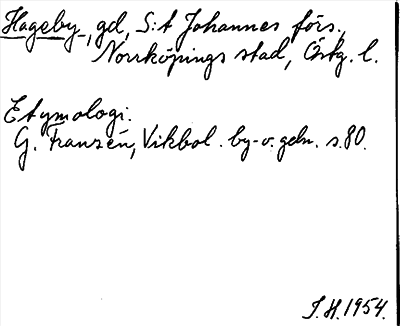 Hageby, gd, S:t Johannes förs.,
Norrköpings stad, Östg. l.
Etymologi.
G. Franzén, Vikbol. by- o. gdn. s. 80.
I. H. 1954.